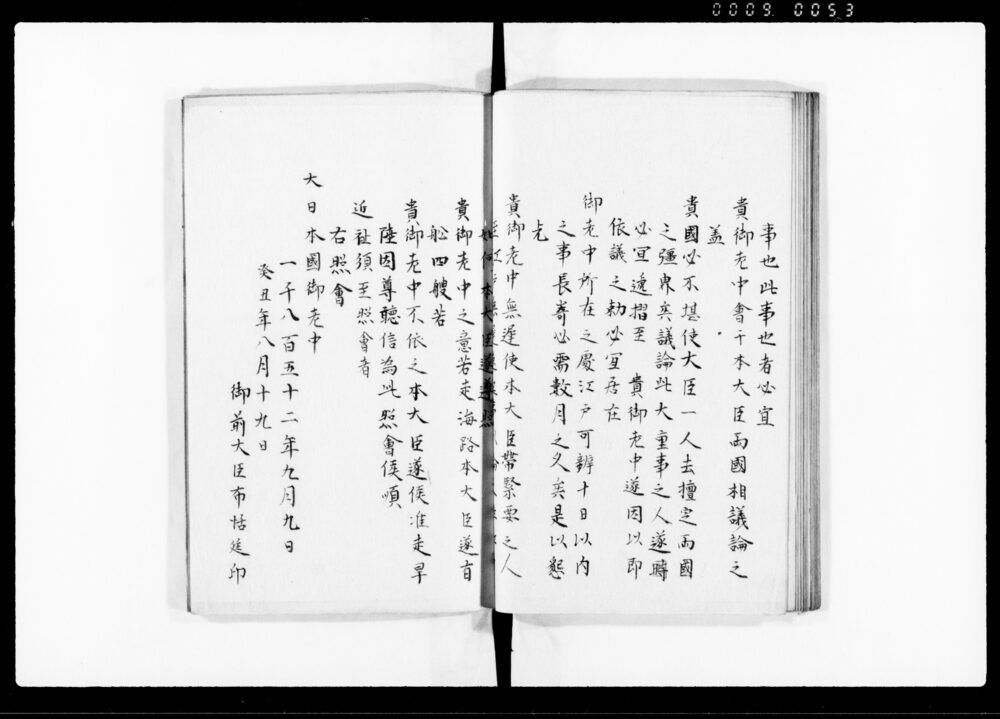 0009 0053
事也此事也者必宜
貴御老中會于本大臣両國相議論之
盖
貴國必不堪使大臣一人去擅定両國
之彊界矣議論此大重事之人遂時
必宜逸摺至　貴御老中遂因以即
依議之勅必宜居在
御老中所在之處江戸可辨十日以内
之事長嵜必需數月之久矣是以懇
尤
貴御老中無遅使本大臣帶緊要之人
貴御老中之意若走海路本大臣遂有
舩四艘若
貴御老中不依之本大臣遂俟准走旱
陸因尊聽信為此照會俟順
近祉須至照會者
右照會
大日本國御老中
一千八百五十二年九月九日
癸丑年八月十九日
御前大臣布恬廷印